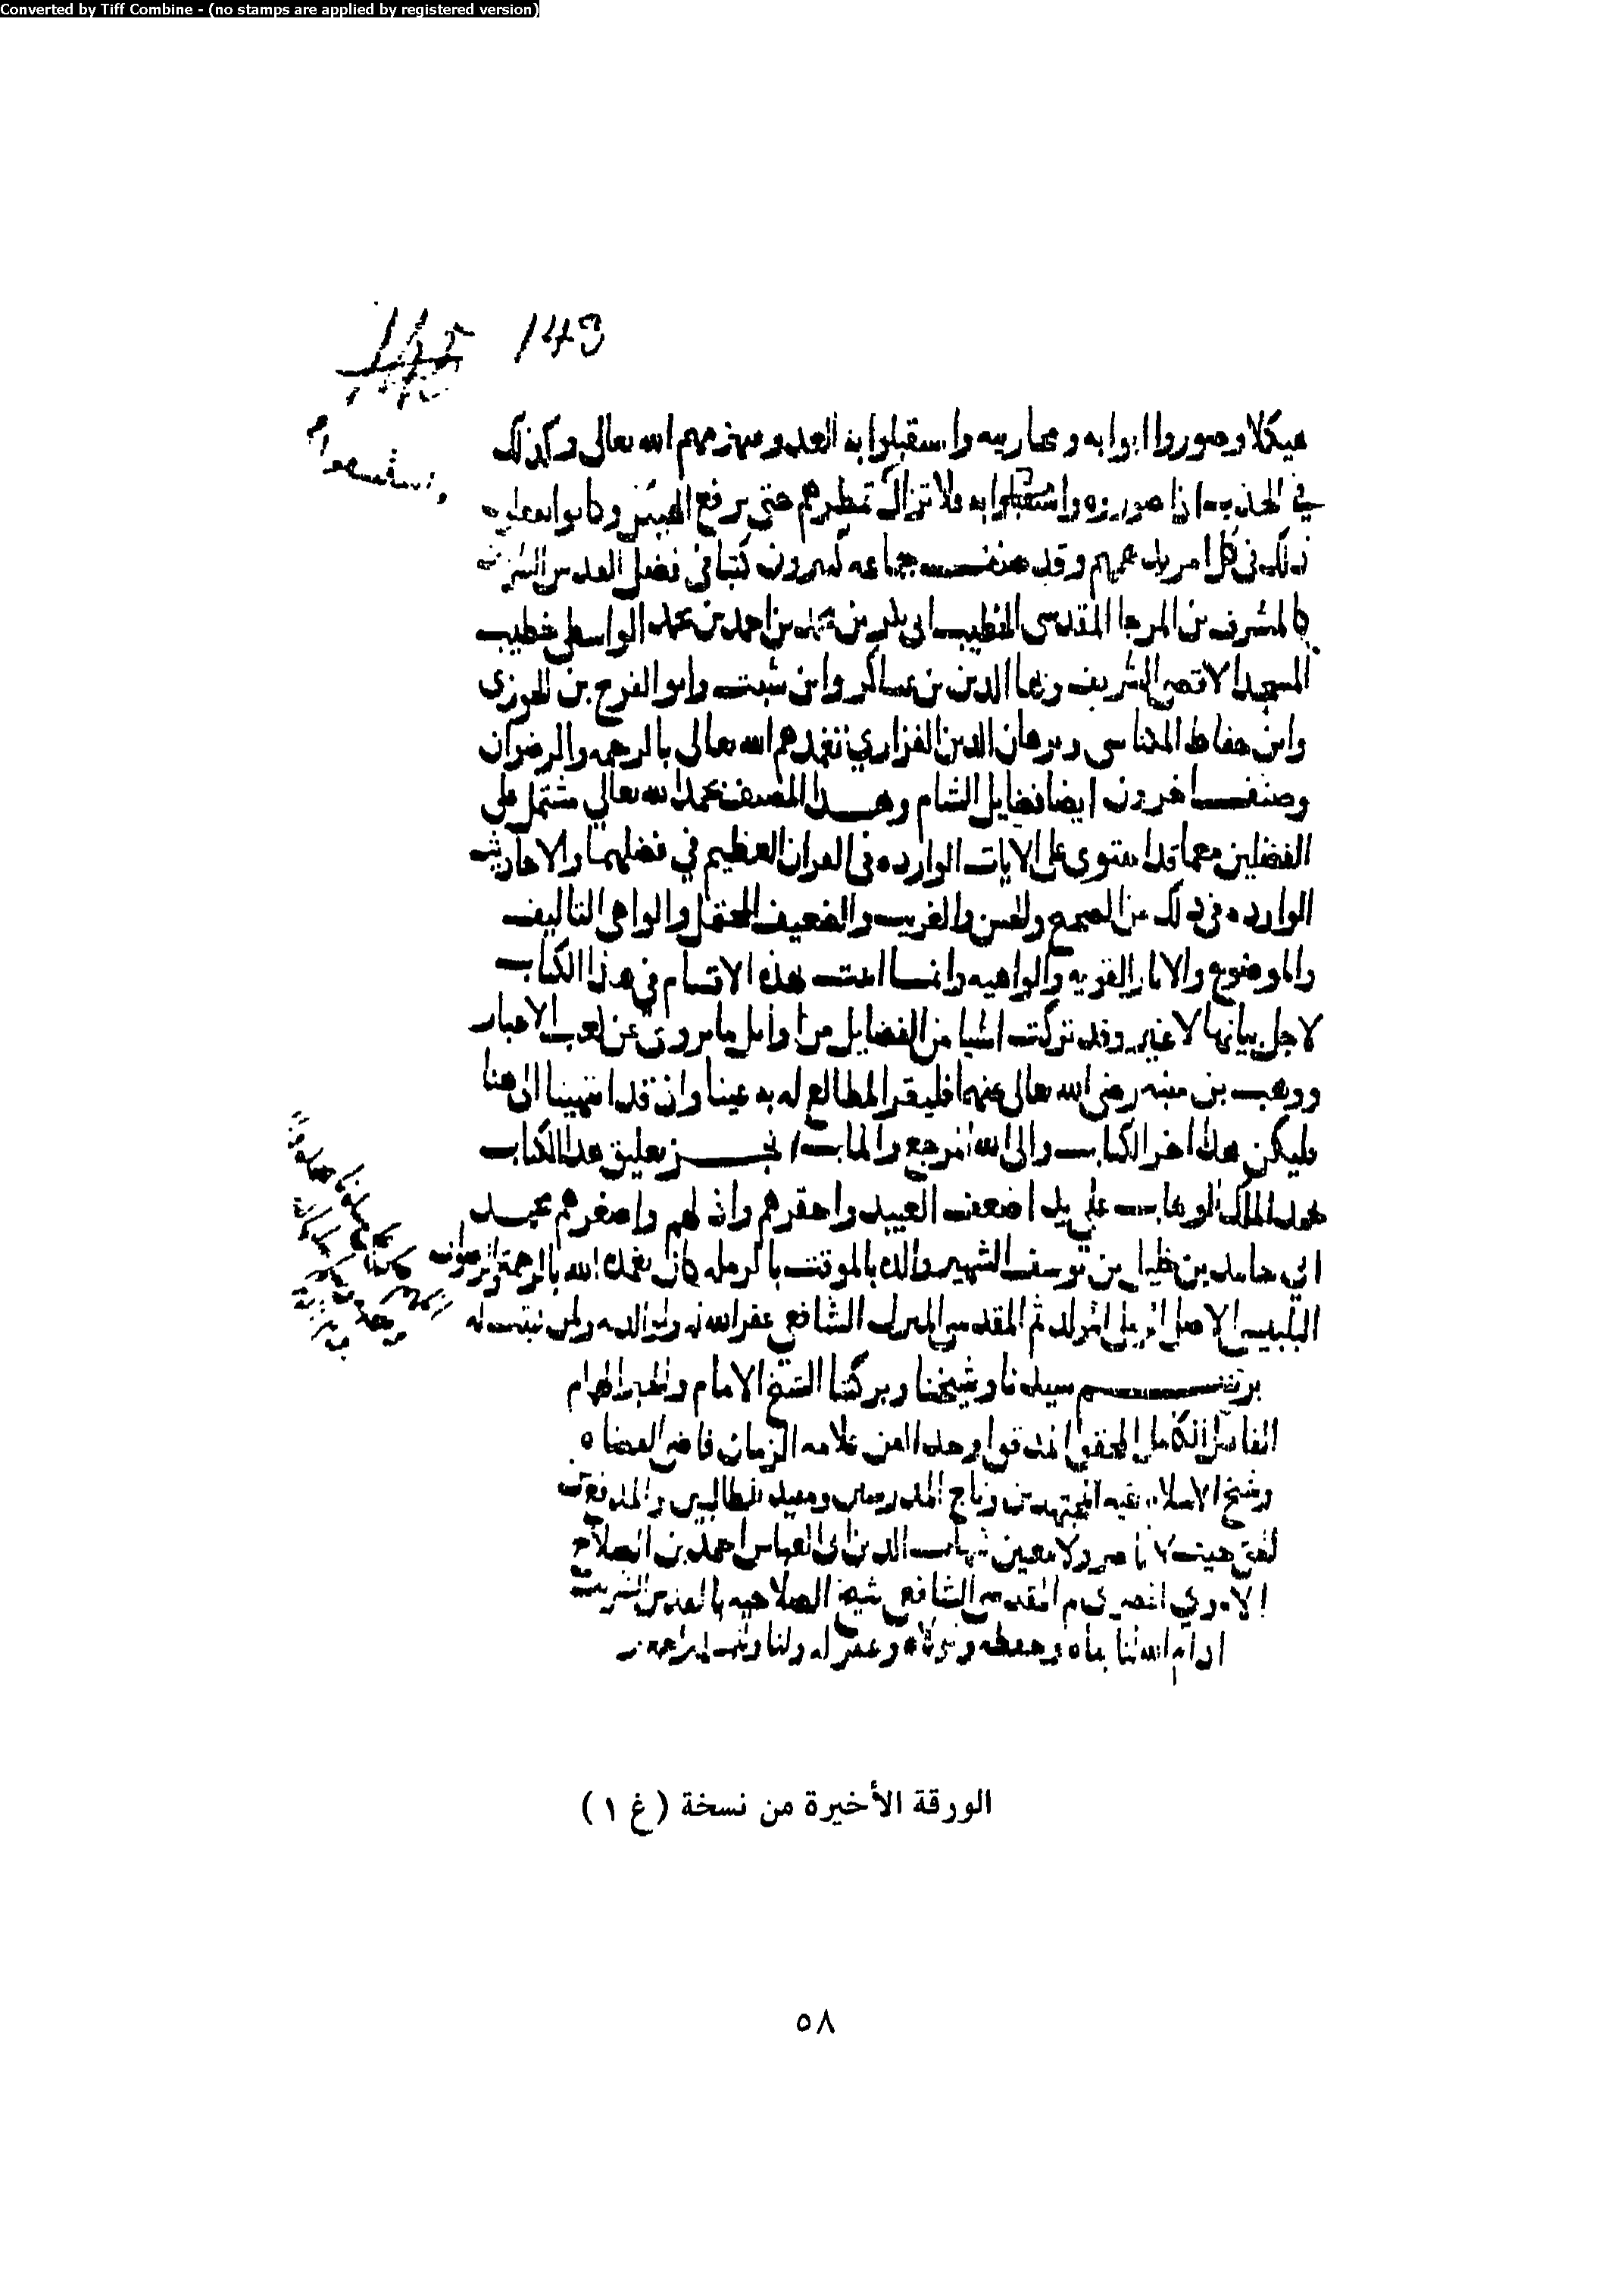 Converted by Tiff Combine - (no stamps are applied by registered version)
143
هيكلا وصوروا ابوابه ومحاريبه واستقبلوا به العدو فيهزمهم الله تعالى وكذلك
في الجدب اذا صوروه واستقبلوا به فلا تزال تمطرهم حتى يرفع الهيكل وكانوا يفعلون
ذلك في كل امر يدهمهم وقد صنف جماعه كثيرون كتبا في فضل القدس الشريف
كالمشرف بن المرجا المقدسي الخطيب ابي بكر بن محمد بن احمد بن محمد الواسطي خطيب
المسجد الاقصى الشريف وبها الدين بن عساكر وابن شيت وابو الفرج بن الجوزي
وابن حفاظ المكناسي وبرهان الدين الفزاري تغمدهم الله تعالى بالرحمه والرضوان
وصنف اخرون ايضا فضايل الشام وهذا المصنف بحمد الله تعالى مشتمل على
الفضلين معا قد احتوى على الايات الوارده في القران العظيم في فضلهما والاحاديث
الوارده في ذلك من الصحيح والحسن والغريب والضعيف المحتمل والواهي التاليف
والموضوع والاثار القويه والواهيه وانما اثبت هذه الاقسام في هذا الكتاب
لاجل بيانها لا غير وقد تركت اشيا من الفضايل من اوايل ما يروى عن كعب الاحبار
ووهب بن منبه رضي الله تعالى عنهما فليقر المطالع له به عينا واذ قد انتهينا الى هنا
فليكن هذا اخر الكتاب والى الله المرجع والماب نجز تعليق هذا الكتاب
بحمد الملك الوهاب على يد اضعف العبيد واحقرهم واذلهم واصغرهم محمد
ابي حامد بن خليل بن يوسف الشهير والده بالموقت بالرمله كان تغمده الله بالرحمة والرضوان
البلبيسي الاصل الرملي المولد ثم المقدسي الشافعي غفر الله له ولوالديه ولمن
برسم سيدنا وشيخنا وبركتنا الشيخ الامام والحبر الهمام
الفاضل الكامل المحقق المدقق اوحد العصر علامه الزمان قاضي القضاه
وشيخ الاسلام بقية المجتهدين وتاج المدرسين ومفيد الطالبين
حيث لا ناصر ولا معين شهاب الدين ابي العباس احمد بن الصلاح
الاموي المصري ثم المقدسي الشافعي شيخ الصلاحيه بالقدس الشريف
ادام الله لنا بقاه وحفظه وتولاه وغفر له ولنا
الورقة الأخيرة من نسخة ( غ ١ )
٥٨